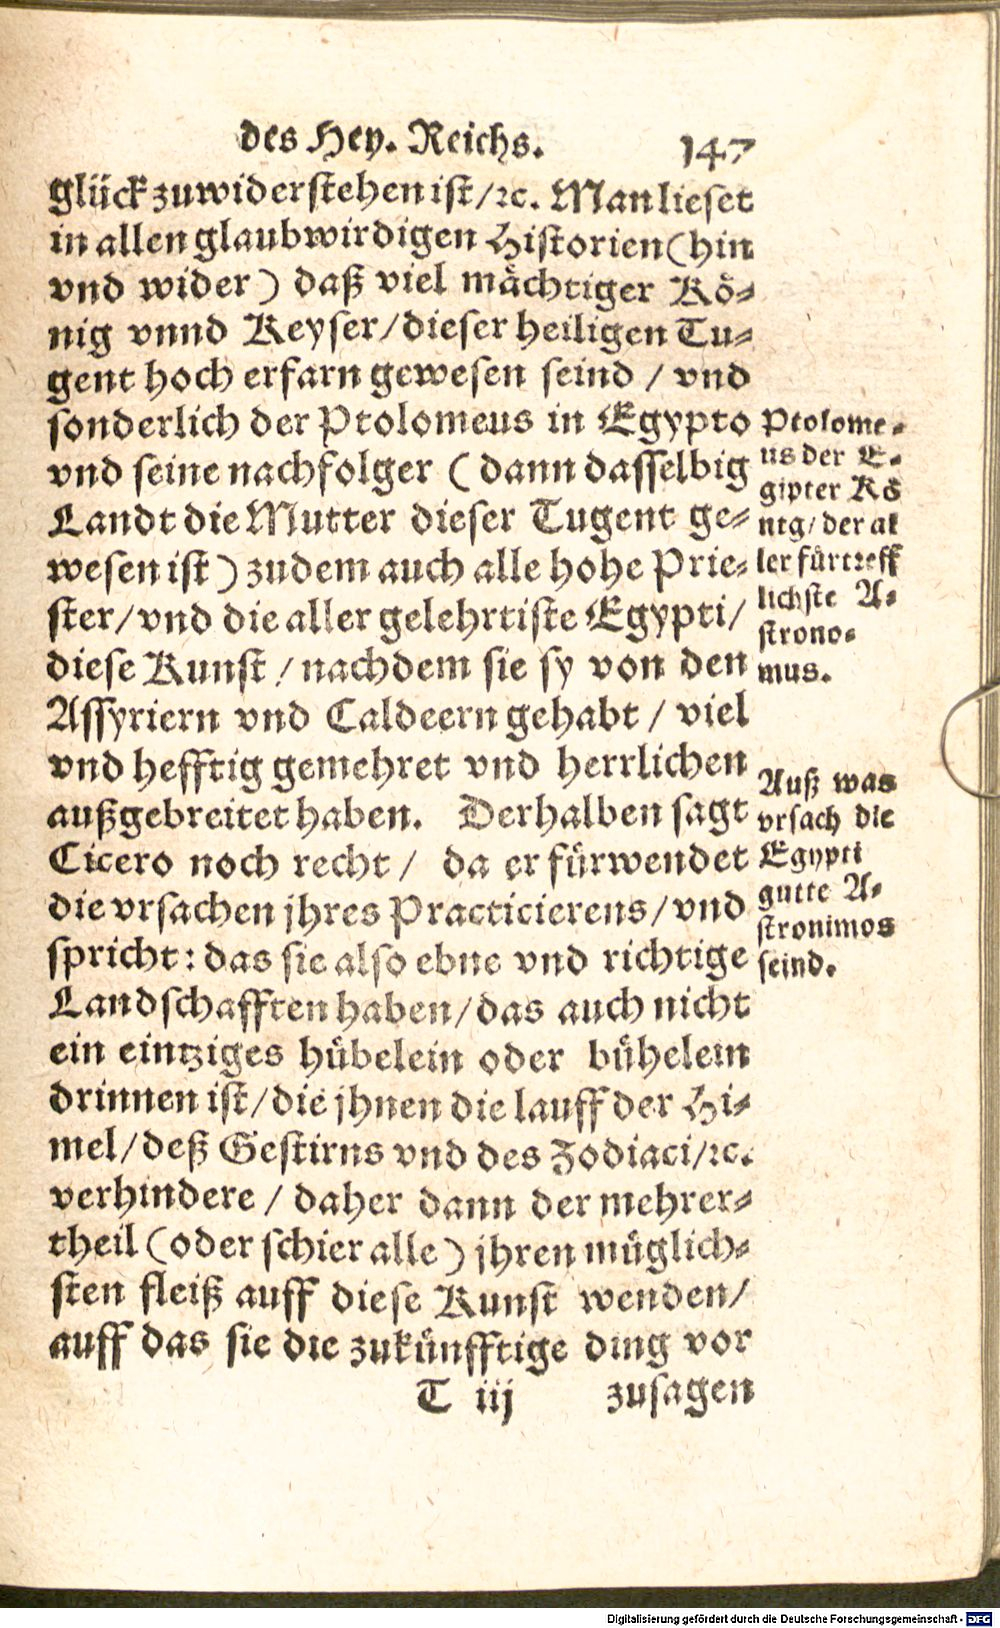 des Hey. Reichs. 147
glück zuwiderstehen ist/ꝛc. Man lieset
in allen glaubwirdigen Historien (hin
vnd wider) daß viel mächtiger Kö-
nig vnnd Keyser/dieser heiligen Tu-
gent hoch erfarn gewesen seind / vnd
sonderlich der Ptolomeus in Egypto
vnd seine nachfolger (dann dasselbig
Landt die Mutter dieser Tugent ge-
wesen ist) zudem auch alle hohe Prie-
ster/vnd die aller gelehrtiste Egypti/
diese Kunst / nachdem sie sy von den
Assyriern vnd Caldeern gehabt / viel
vnd hefftig gemehret vnd herrlichen
außgebreitet haben. Derhalben sagt
Cicero noch recht / da er fürwendet
die vrsachen jhres Practicierens/vnd
spricht: das sie also ebne vnd richtige
Landschafften haben/das auch nicht
ein eintziges hübelein oder bühelein
drinnen ist/die jhnen die lauff der Hi-
mel/deß Gestirns vnd des Zodiaci/ꝛc.
verhindere / daher dann der mehrer-
theil (oder schier alle) jhren müglich-
sten fleiß auff diese Kunst wenden/
auff das sie die zukünfftige ding vor
T iij zusagen
Ptolome-
us der E-
gipter Kö
nig/der al
ler fürtreff
lichste A-
strono-
mus.
Auß was
vrsach die
Egypti
gutte A-
stronimos
seind.
Digitalisierung gefördert durch die Deutsche Forschungsgemeinschaft - DFG